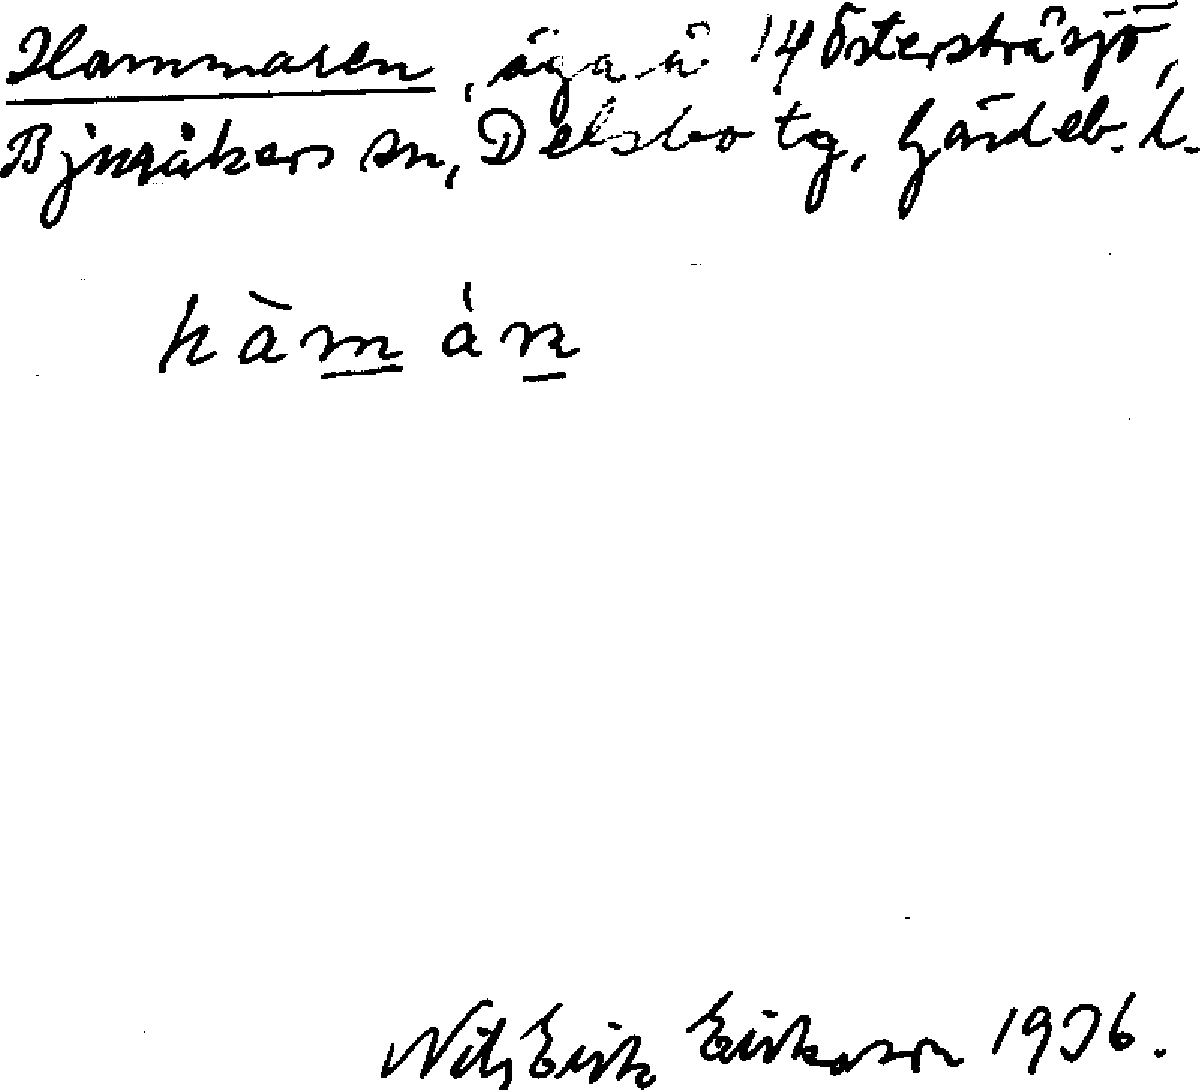 Hammaren, äga å 14 Östersträsjö,
Bjuråkers sn, Delsbo tg, Gävleb. l.
hàmán
Nils Erik Erikson 1936.